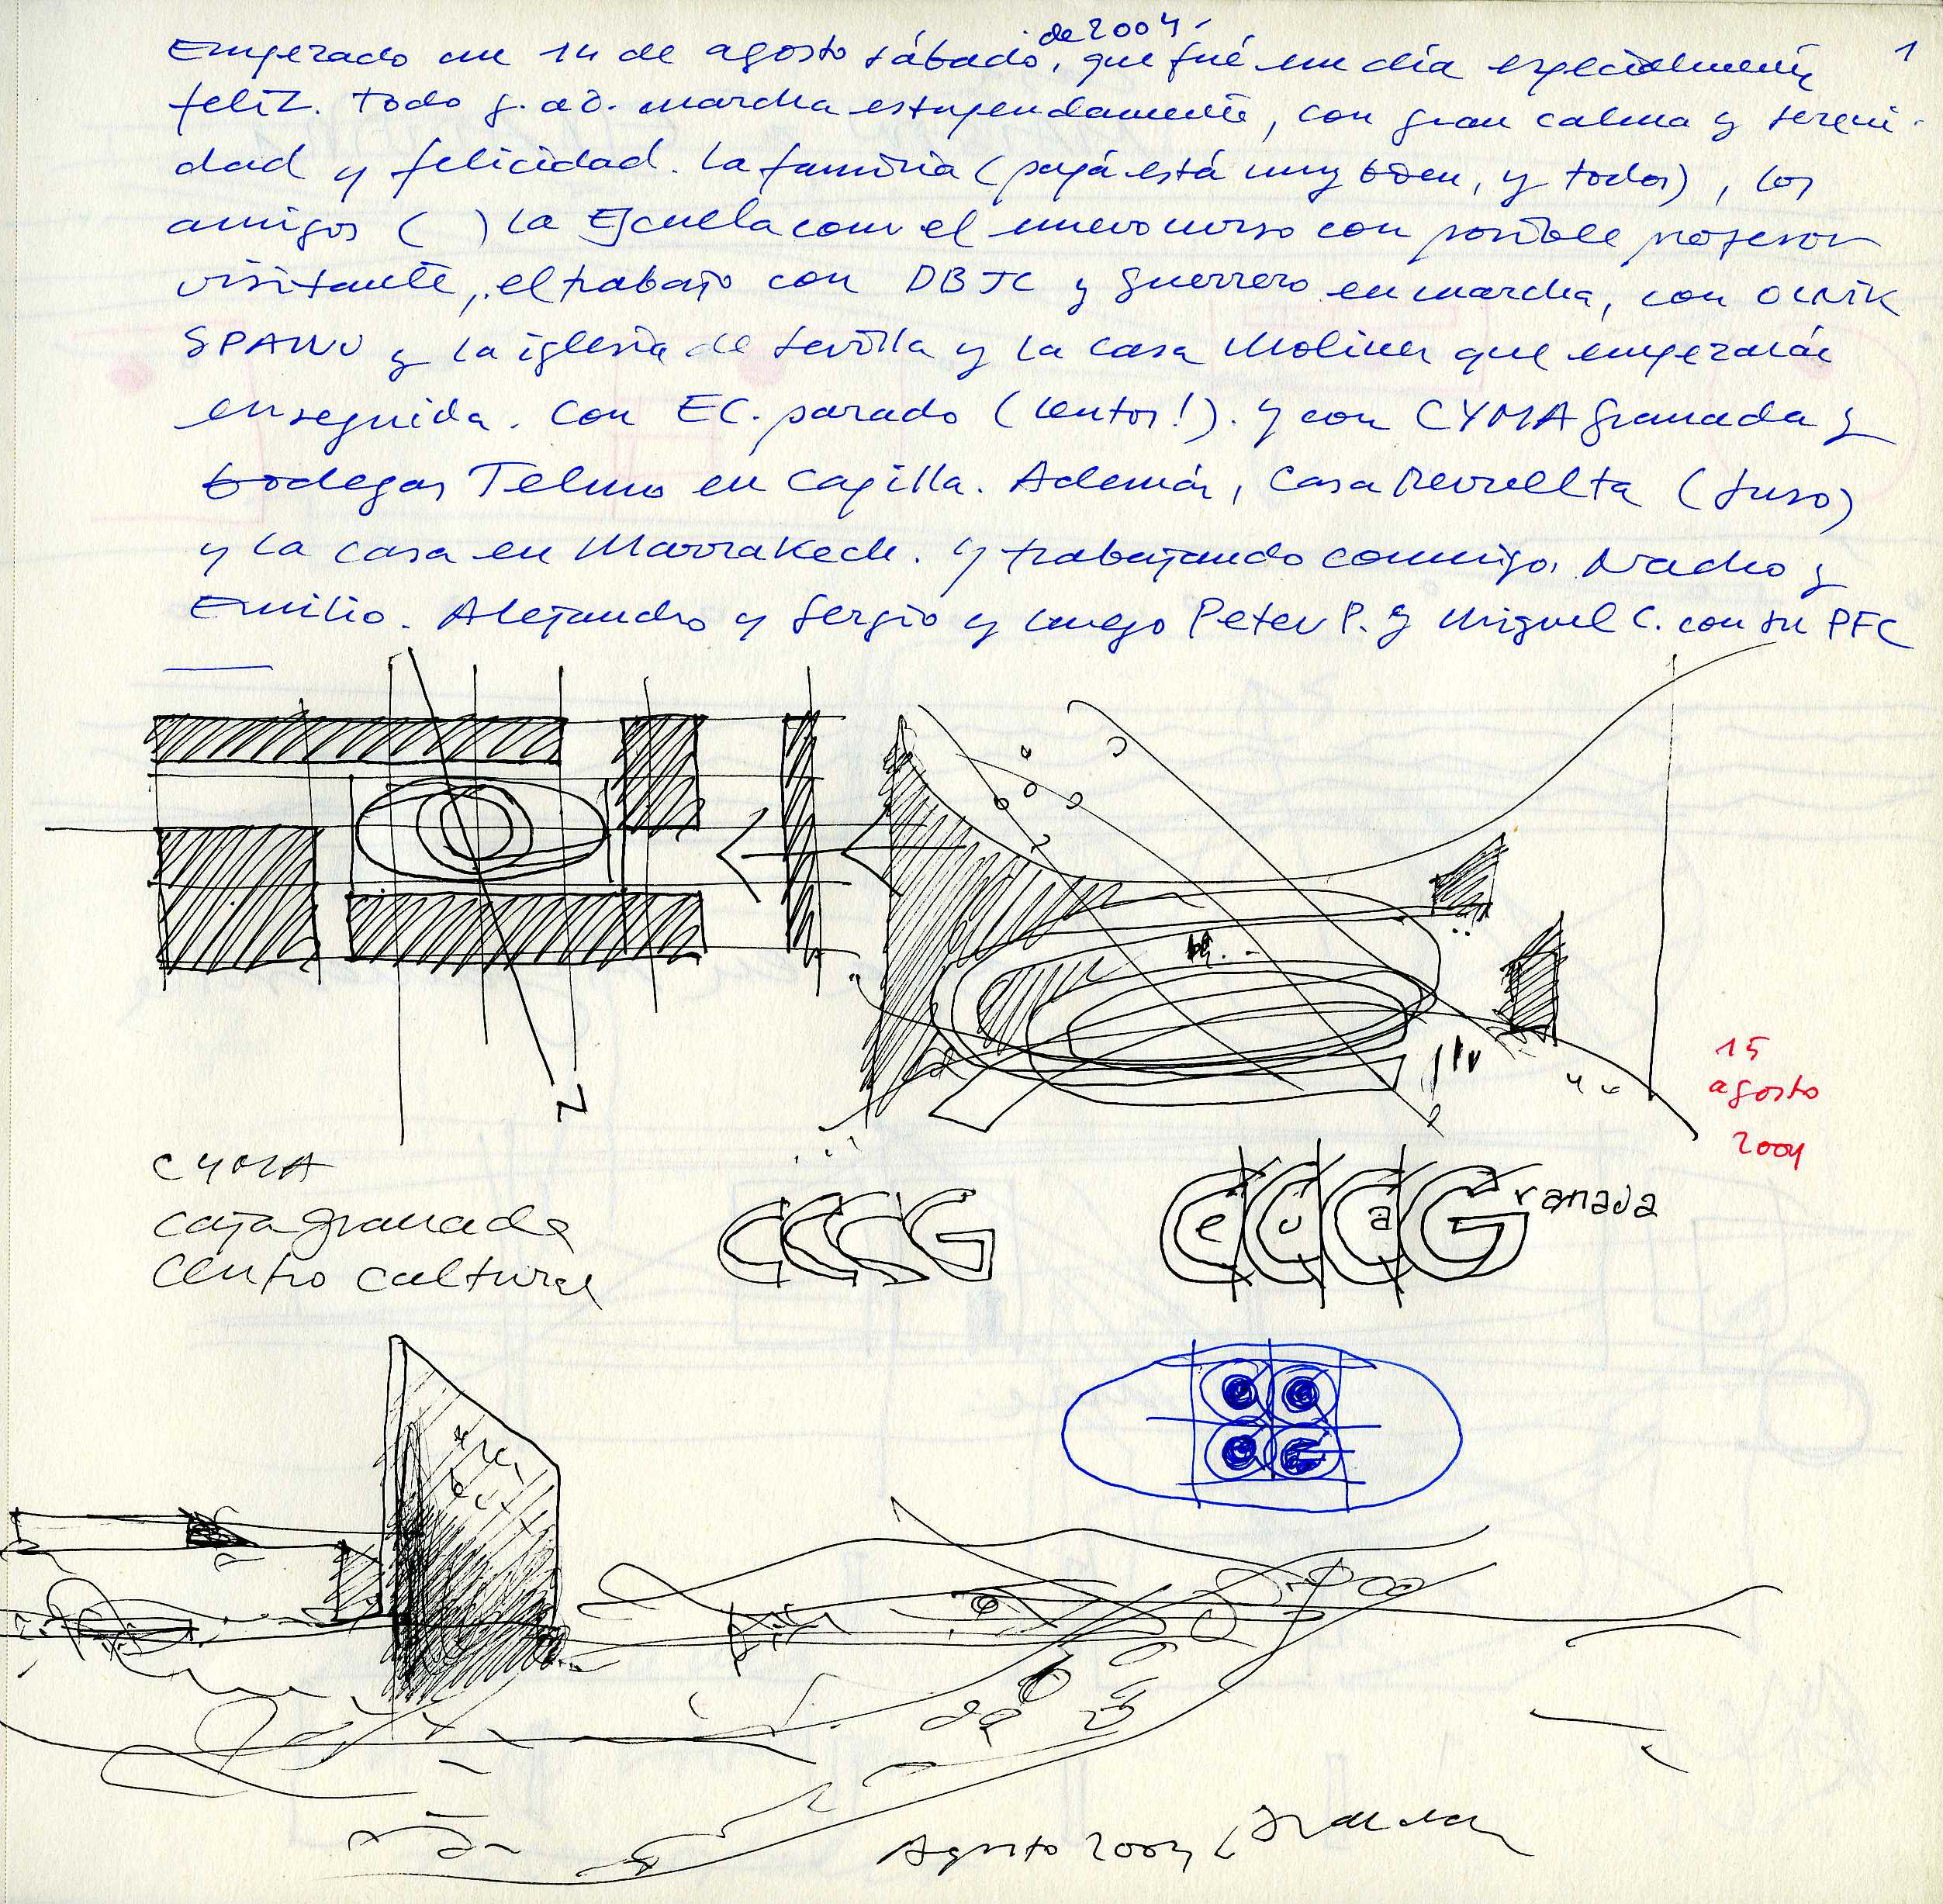 de 2004.
Empezado un 14 de agosto sábado, que fué un día especialmente
1
feliz. Todo g. a D. marcha estupendamente, con gran calma y sereni-
dad y felicidad. La familia (papá está muy bien, y todos), los
amigos ( ) la Escuela con el nuevo curso con posible profesor
visitante, el trabajo con DBJC y Guerrero en marcha, con OLNIK
SPANU y la iglesia de Sevilla y la casa Moliner que empezarán
enseguida. Con EC. parado (lentos!). Y con CYMA Granada y
bodegas Telmo en Capilla. Además, Casa Revuelta (Suso)
y la casa en Marrakech. Y trabajando conmigo, Nacho y
Emilio. Alejandro y Sergio y luego Peter P. y Miguel C. con su PFC
N
15
agosto
2004
CYMA
caja granada
centro cultural
CCCG
CCCGranada
e u a
Agosto 2004